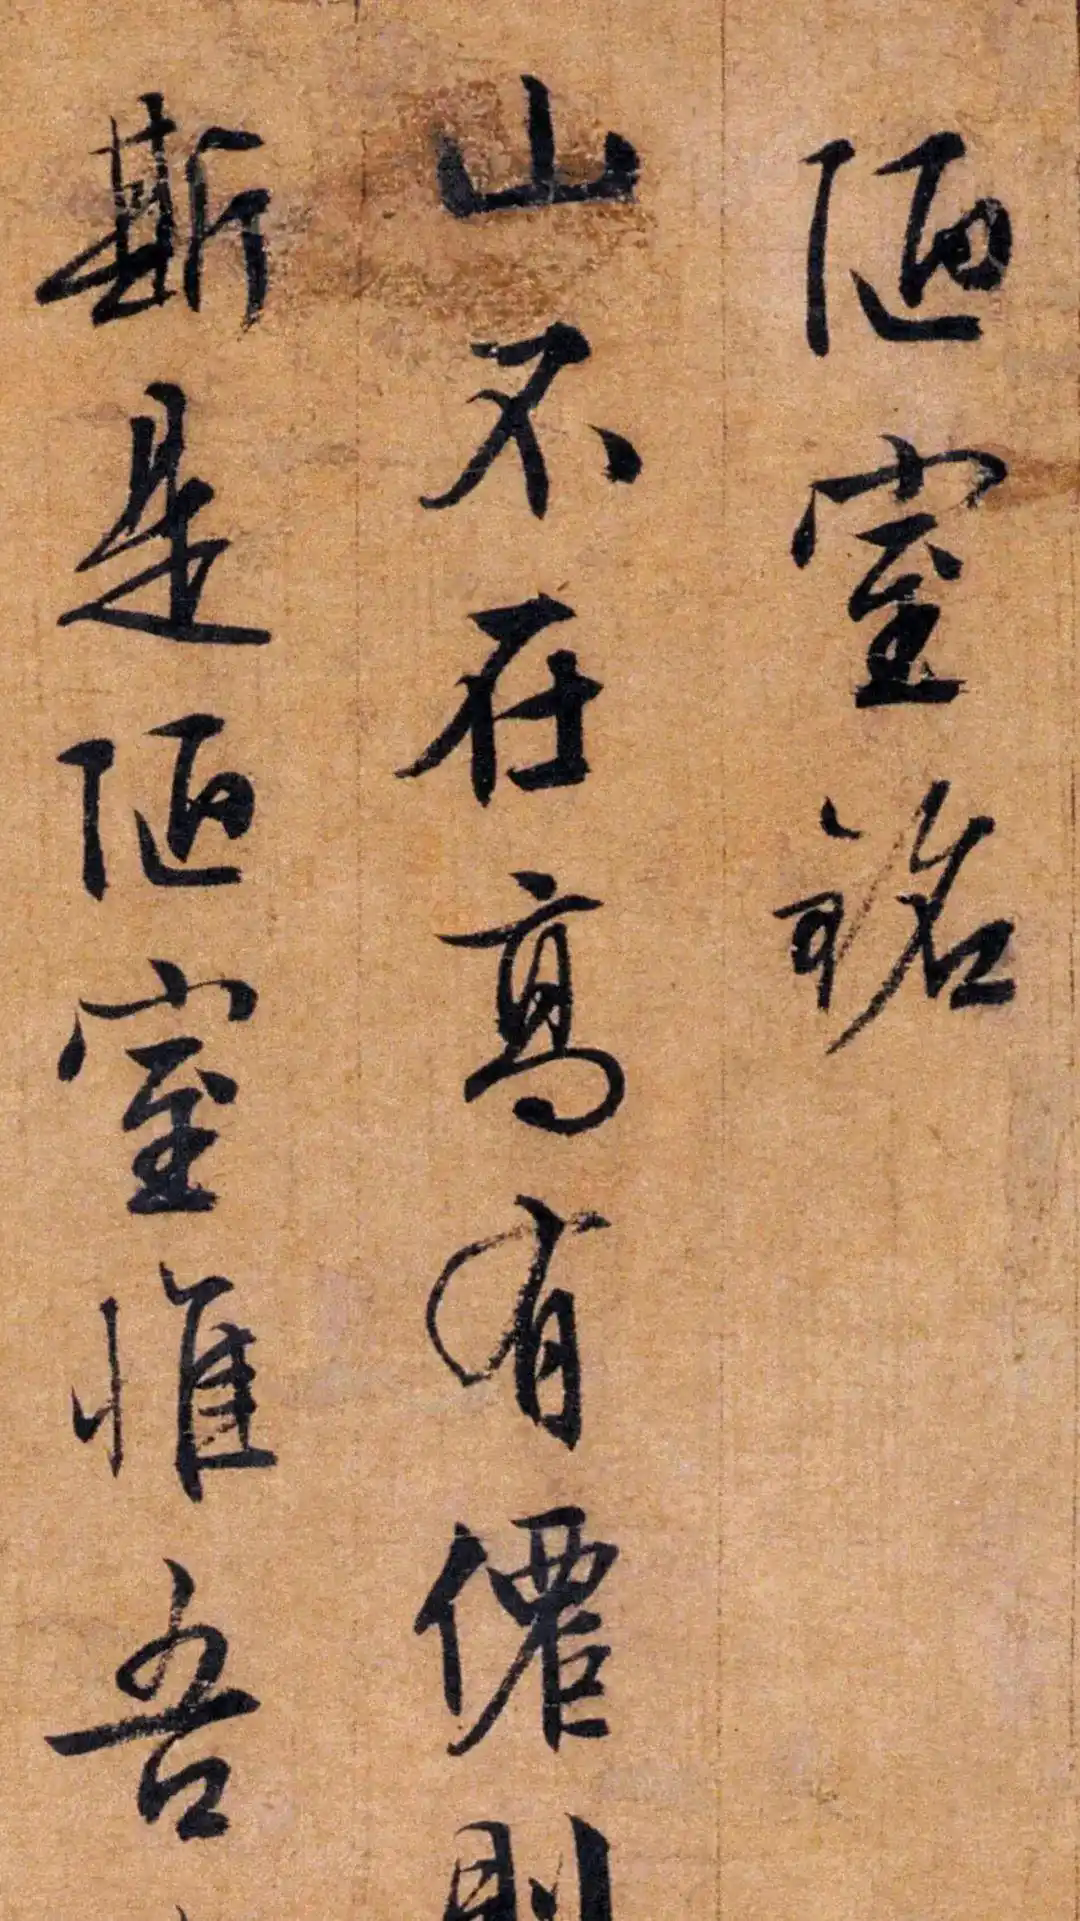 陋室銘
山不在高有僊則
斯是陋室惟吾